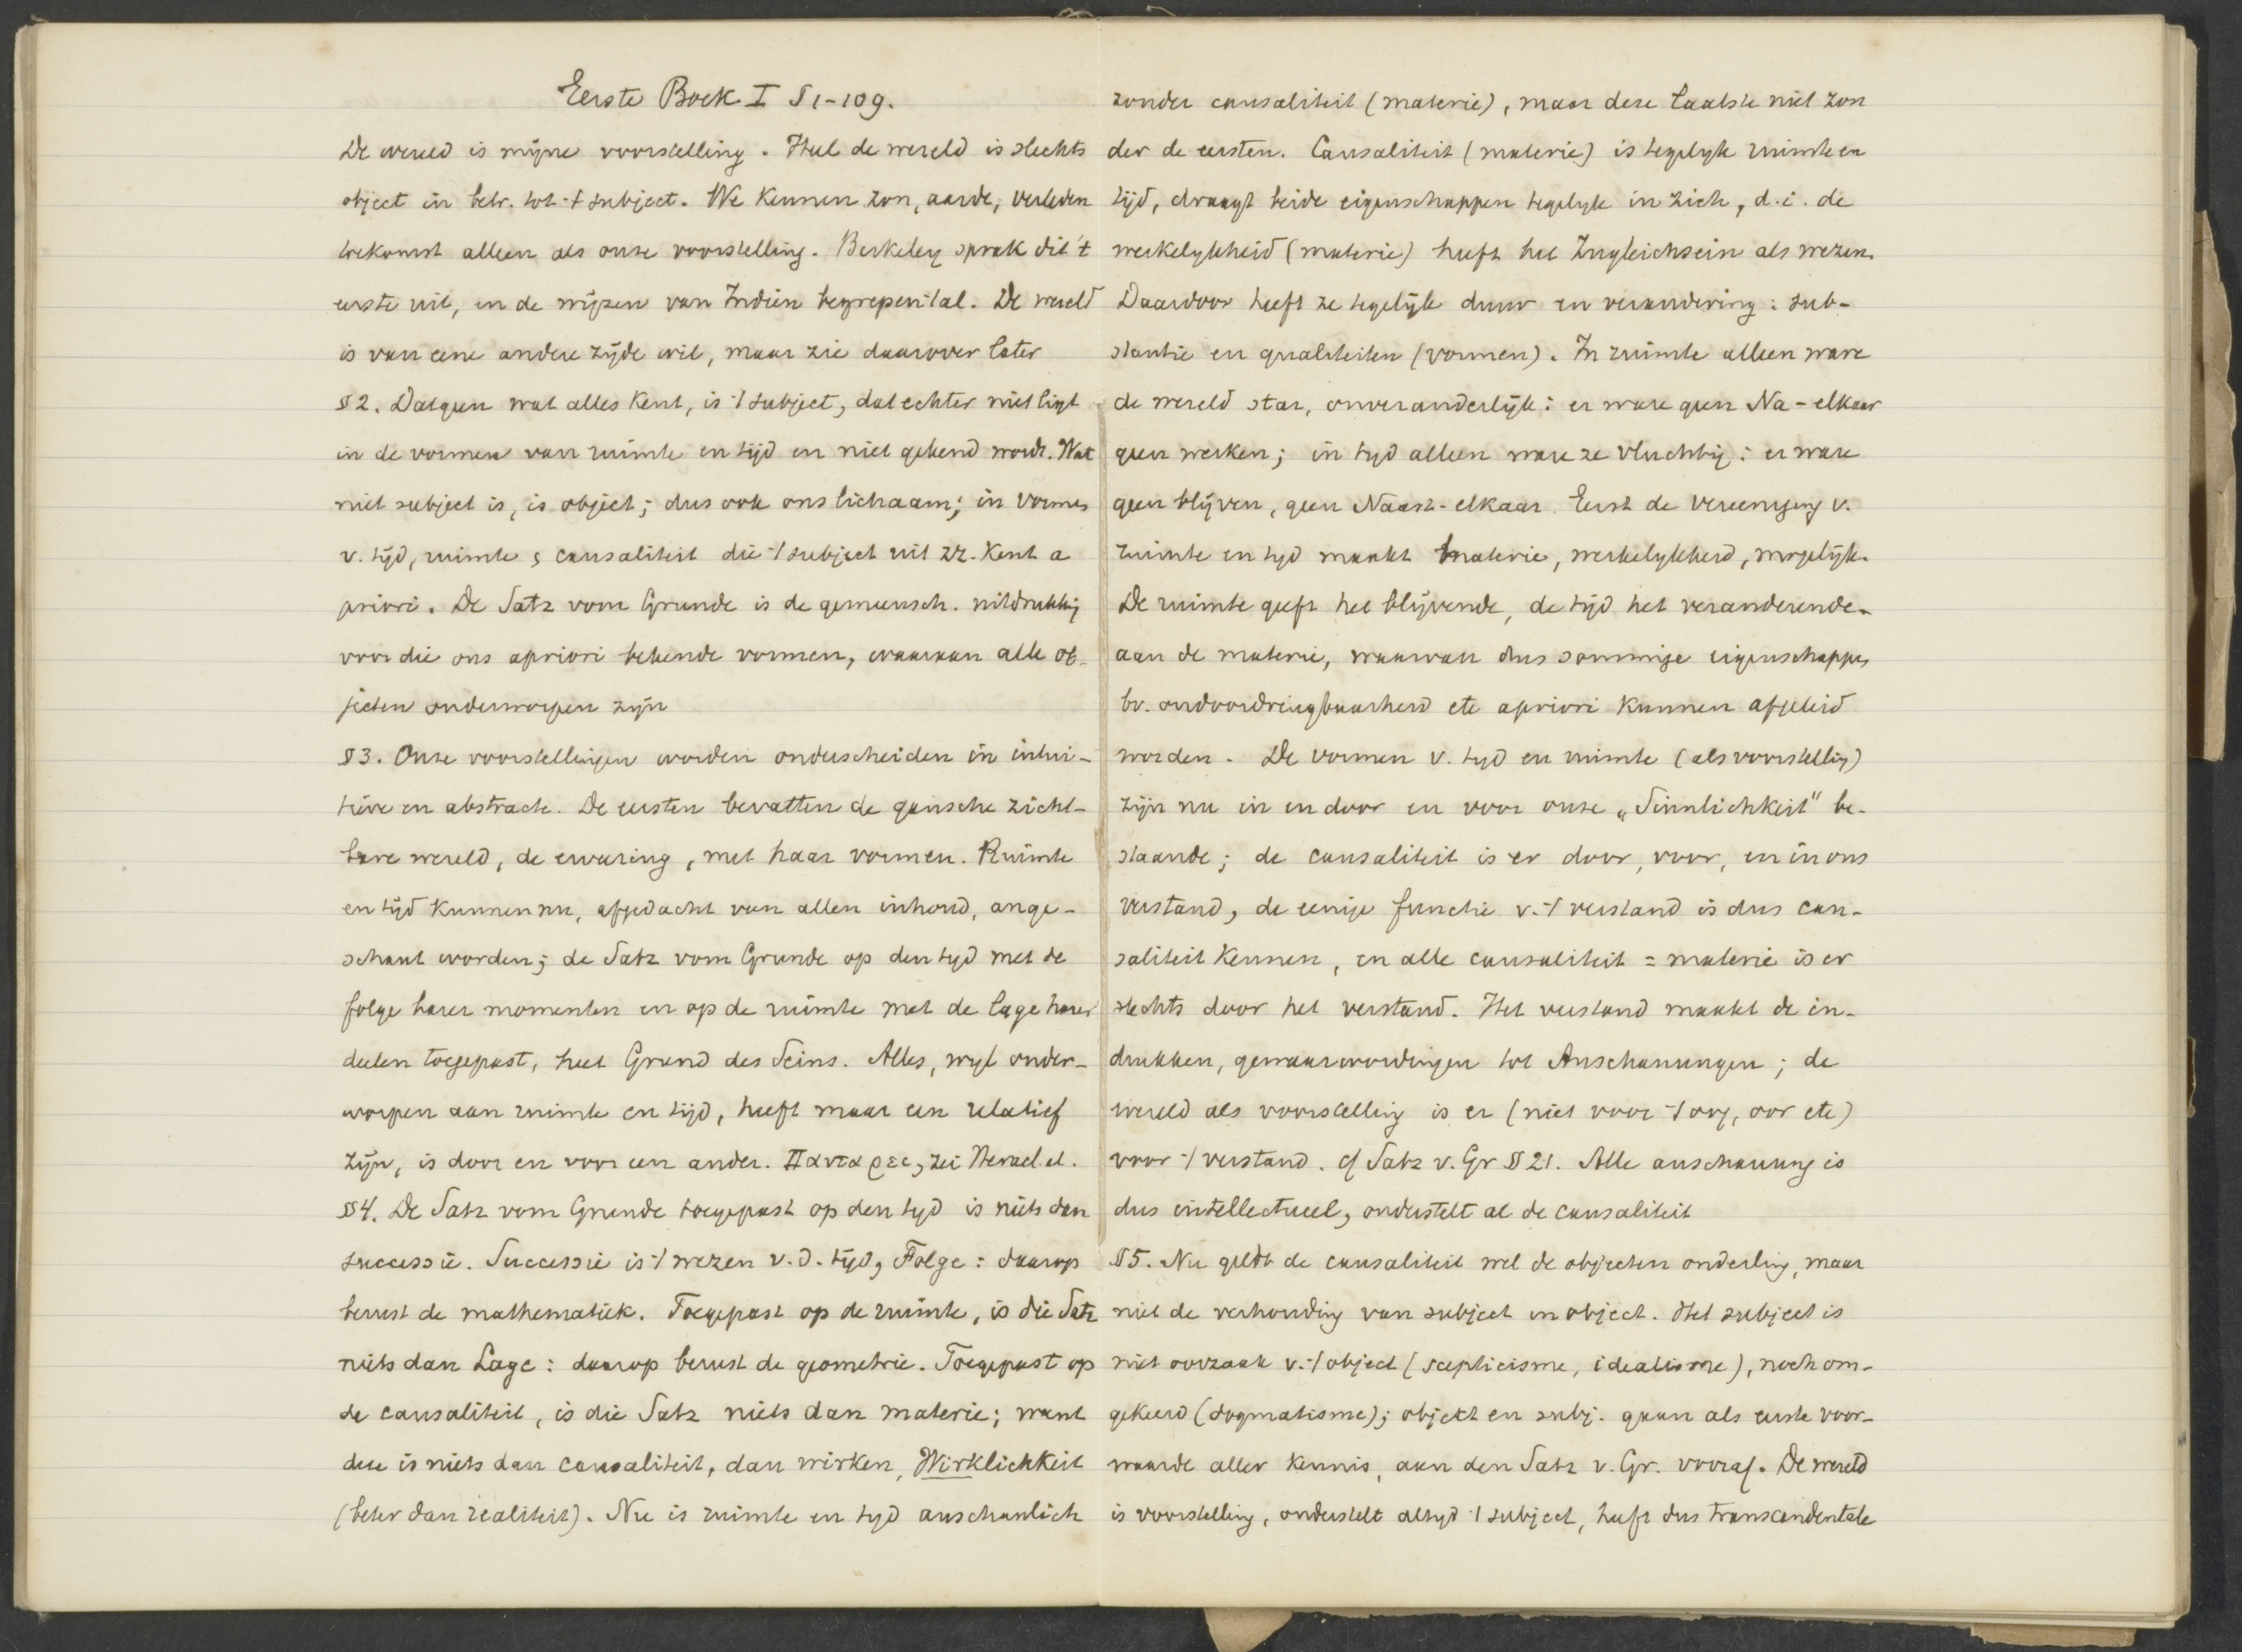 Eerste Boek I § 1-109.
De wereld is mijne voorstelling. Heel de wereld is slechts
object in betr. tot 't subject. We kennen zon, aarde, verleden
toekomst alleen als onze voorstelling. Berkeley sprak dit 't
eerste uit, en de wijzen van Indien begrepen 't al. De wereld
is van eene andere zijde wil, maar zie daarover later
§ 2. Datgeen wat alles kent, is 't subject, dat echter niet ligt
in de vormen van ruimte en tijd en niet gekend wordt. Wat
niet subject is, is object; dus ook ons lichaam; in vormen
v. tijd, ruimte & causaliteit die 't subject uit zz. kent a
priori. De Satz vom Grunde is de gemeensch. uitdrukking
voor die ons apriori bekende vormen, waaraan alle ob-
jecten onderworpen zijn
§ 3. Onze voorstellingen worden onderscheiden in intui-
tieve en abstracte. De eersten bevatten de gansche zicht-
bare wereld, de ervaring, met haar vormen. Ruimte
en tijd kunnen nu, afgedacht van allen inhoud, ange-
schaut worden; de Satz vom Grunde op den tyd met de
folge harer momenten en op de ruimte met de lage harer
deelen toegepast, heet Grund des Seins. Alles, wyl onder-
worpen aan ruimte en tijd, heeft maar een relatief
zijn, is door en voor een ander. Παντα ρει, zei Heracl. al.
§ 4. De Satz vom Grunde toegepast op den tyd is niets dan
successie. Successie is 't wezen v.d. tijd, Folge: daarop
berust de mathematiek. Toegepast op de ruimte, is die Satz
niets dan Lage: daarop berust de geometrie. Toegepast op
de causaliteit, is die Satz niets dan materie; want
deze is niets dan causaliteit, dan wirken, Wirklichkeit
(beter dan realiteit). Nu is ruimte en tyd anschaulich
zonder causaliteit (materie), maar deze laatste niet zon
der de eersten. Causaliteit (materie) is tegelyk ruimte en
tijd, draagt beide eigenschappen tegelyk in zich, d.i. de
werkelykheid (materie) heeft het Zugleichsein als wezen.
Daardoor heeft ze tegelijk duur en verandering: sub-
stantie en qualiteiten (vormen). In ruimte alleen ware
de wereld star, onveranderlijk: er ware geen Na-elkaar
geen werken; in tyd alleen ware ze vluchtig: er ware
geen blijven, geen Naast-elkaar. Eerst de vereeniging v.
ruimte en tyd maakt materie, werkelykheid, mogelijk.
De ruimte geeft het blijvende, de tijd het veranderende.
aan de materie, waarvan dus sommige eigenschappen
bv. ondoordringbaarheid etc apriori kunnen afgeleid
worden. De vormen v. tyd en ruimte (als voorstelling)
zijn nu in en door en voor onze „Sinnlichkeit" be-
staande; de causaliteit is er door, voor, en in ons
verstand, de eenige functie v. 't verstand is dus cau-
saliteit kennen, en alle causaliteit = materie is er
slechts door het verstand. Het verstand maakt de in-
drukken, gewaarwordingen tot Anschauungen; de
wereld als voorstelling is er (niet voor 't oog, oor etc)
voor 't verstand. cf Satz v. Gr § 21. Alle anschauung is
dus intellectueel, onderstelt al de causaliteit
§ 5. Nu geldt de causaliteit wel de objecten onderling, maar
niet de verhouding van subject en object. Het subject is
niet oorzaak v. 't object (scepticisme, idealisme), noch om-
gekeerd (dogmatisme); objekt en subj. gaan als eerste voor-
waarde aller kennis, aan den Satz v. Gr. vooraf. De wereld
is voorstelling, onderstelt altyd 't subject, heeft dus transcendentale